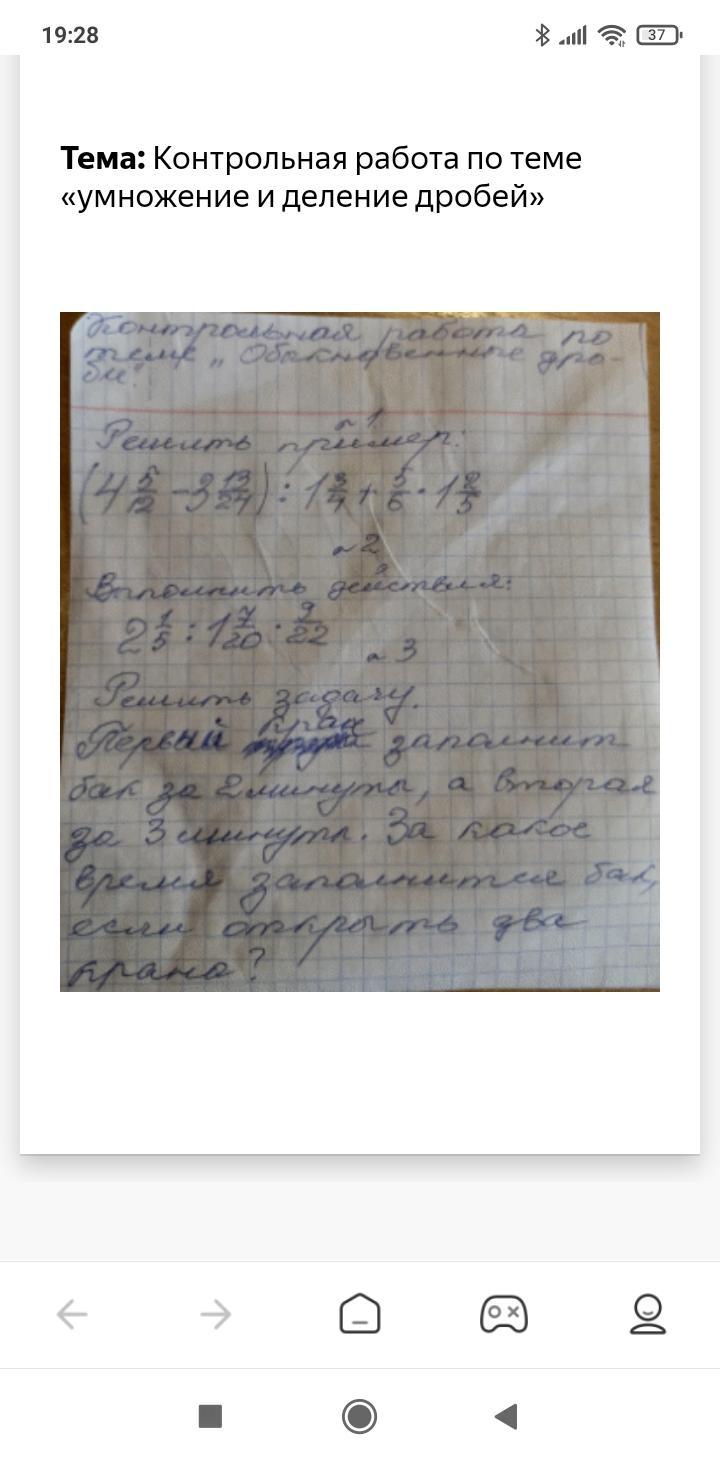 19:28
37
Тема: Контрольная работа по теме
«умножение и деление дробей»
Контрольная работа по
теме „Обыкновенные дро-
би".
~ 1
Решить пример:
(4 5/12 - 3 13/24) : 1 3/4 + 5/6 · 1 2/5
~ 2
Выполнить действия:
2 1/5 : 1 7/20 · 9/22
~ 3
Решить задачу.
Первый кран заполнит
бак за 2 минуты, а вторая
за 3 минуты. За какое
время заполнится бак,
если открыть два
крана?